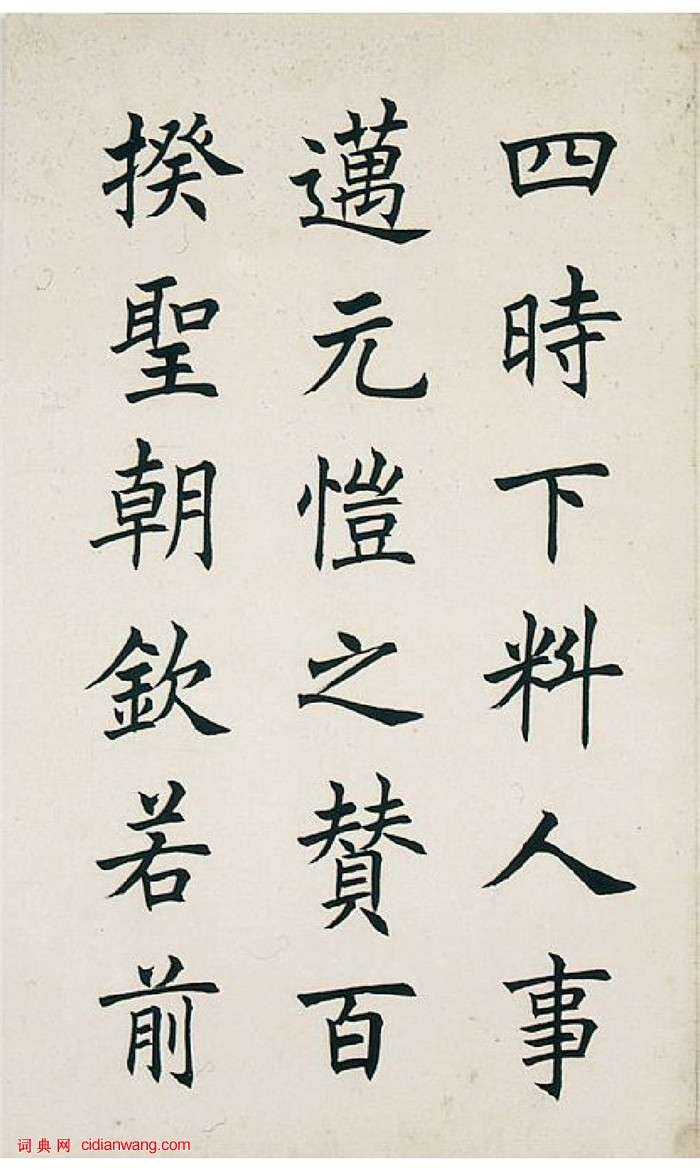 四時下料人事
邁元愷之賛百
揆聖朝欽若前
词典网 cidianwang.com